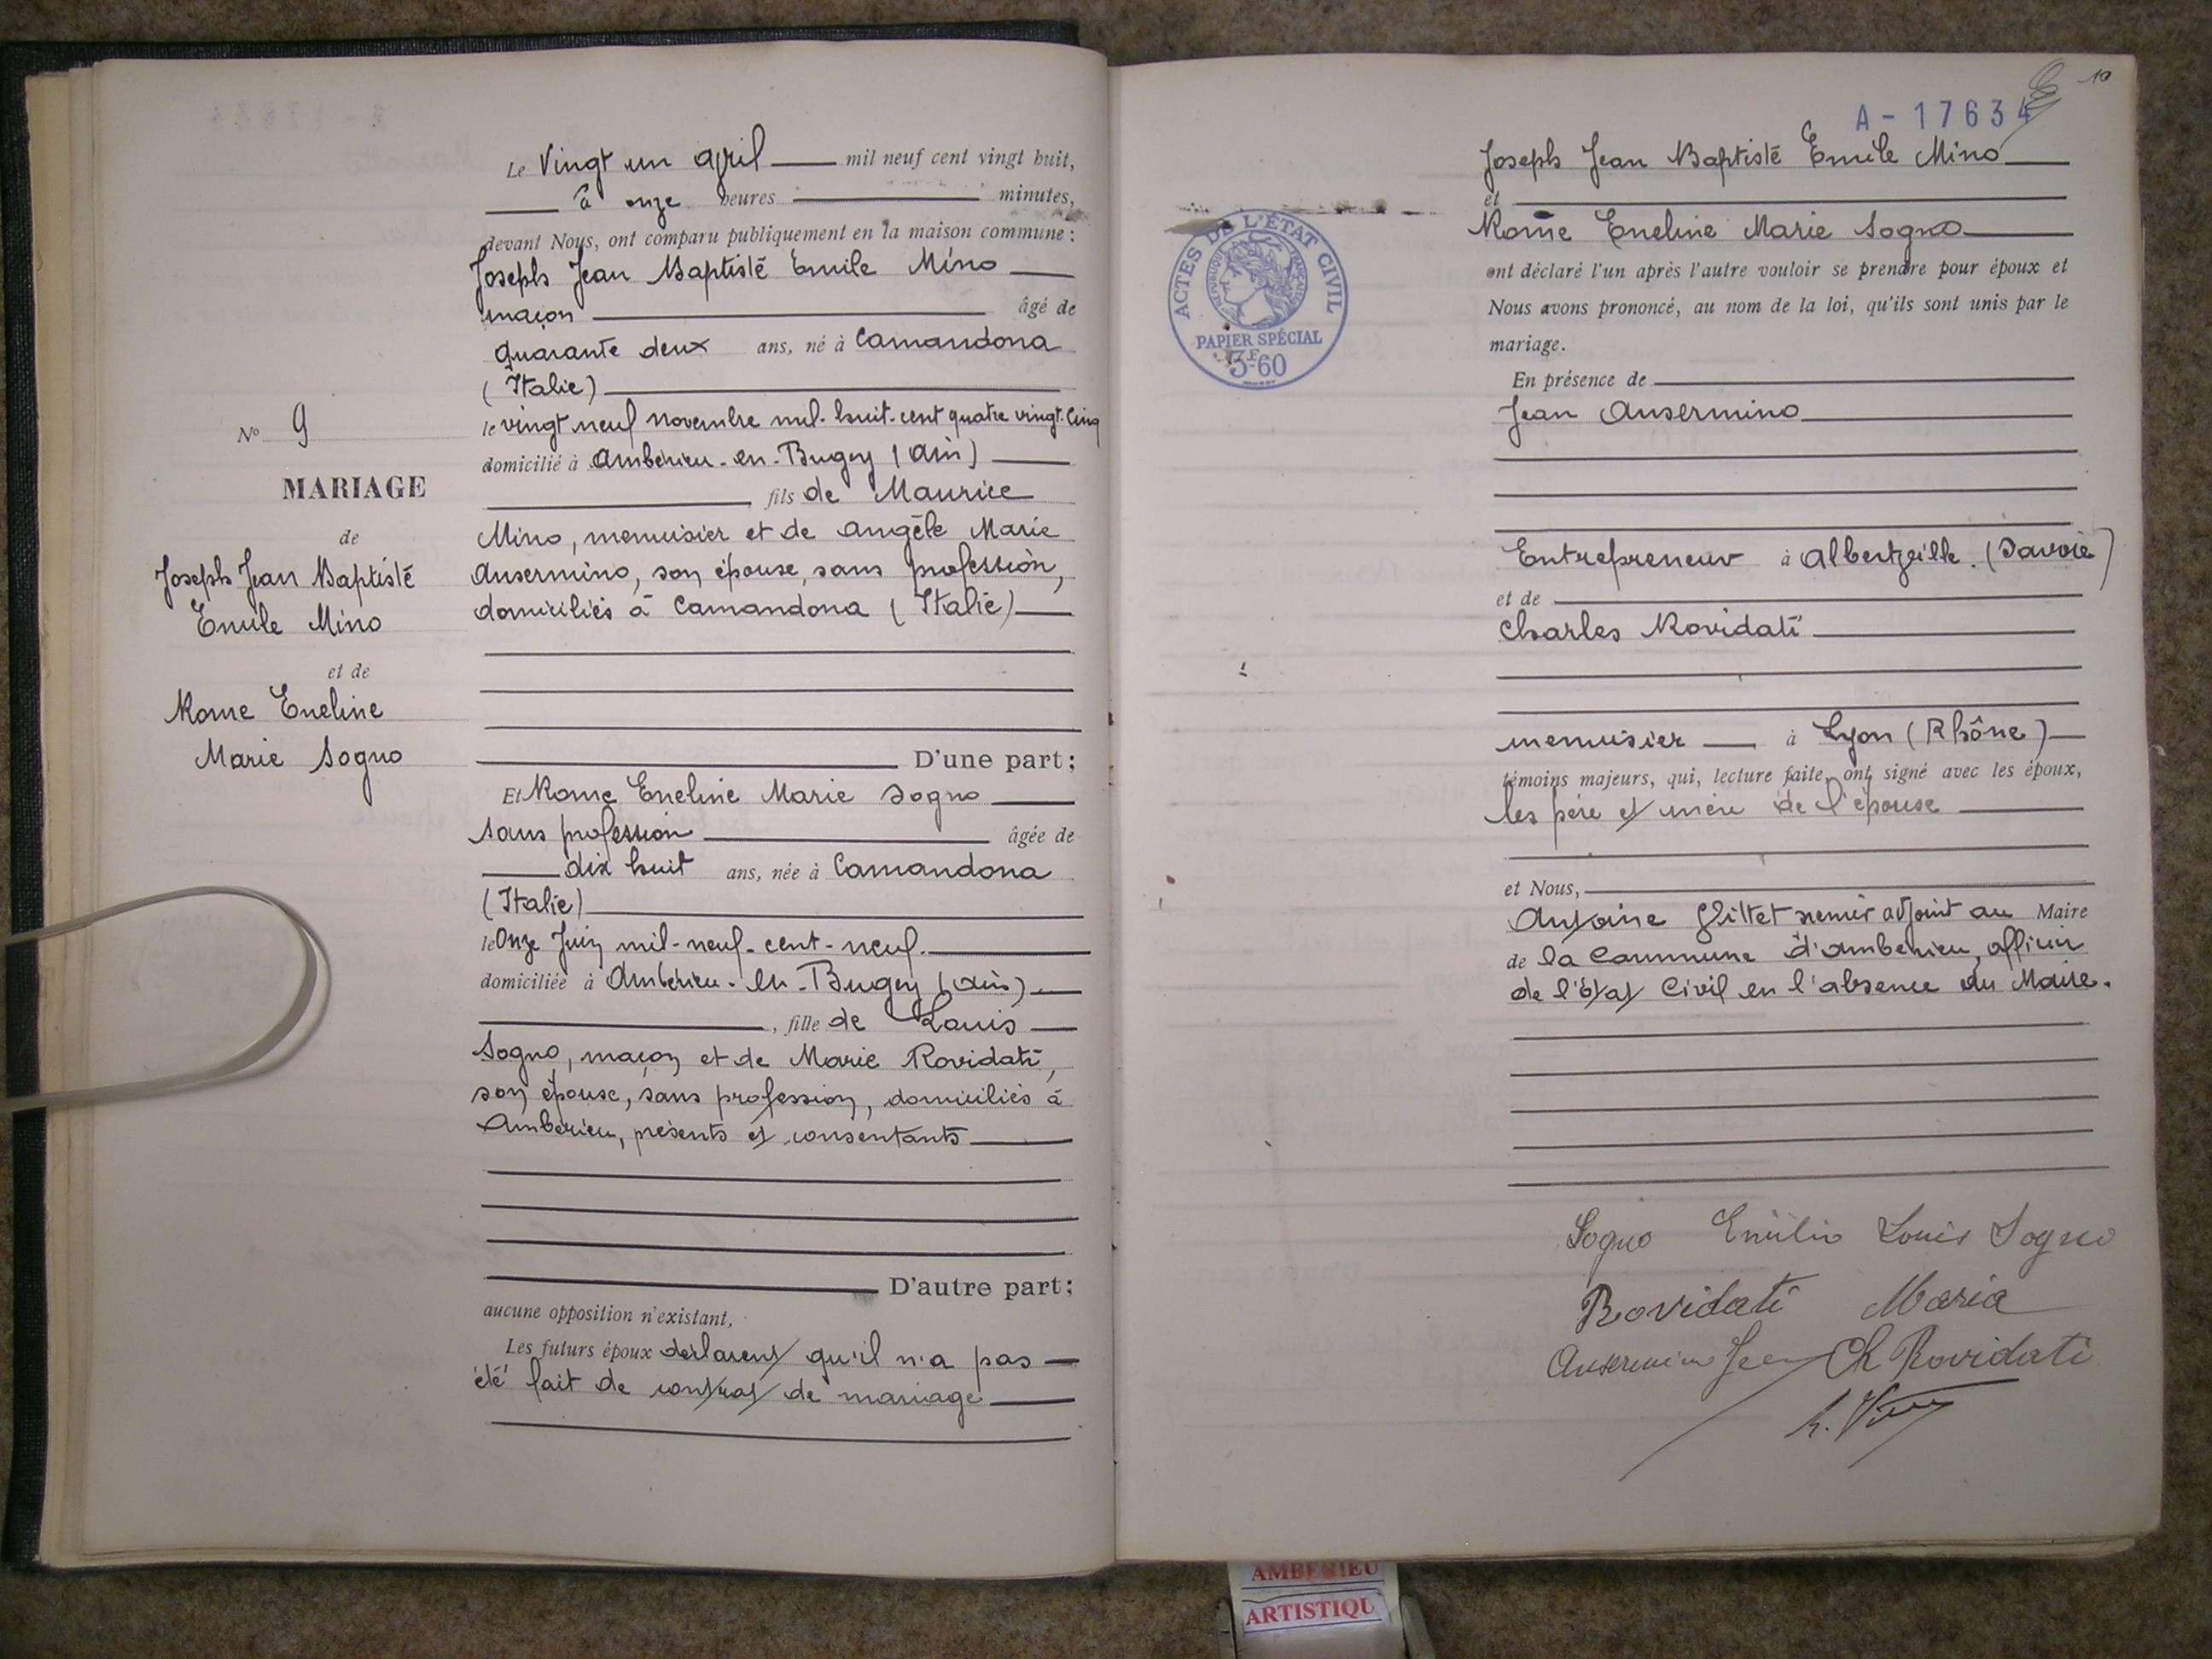 Le Vingt un avril mil neuf cent vingt huit,
à onze heures minutes,
devant Nous, ont comparu publiquement en la maison commune :
Joseph Jean Baptiste Emile Mino
maçon âgé de
quarante deux ans, né à Camandona
(Italie)
le vingt neuf novembre mil-huit-cent quatre vingt-cinq
domicilié à Ambérieu-en-Bugey (Ain)
fils de Maurice
Mino, menuisier et de Angèle Marie
Ansermino, son épouse, sans profession,
domiciliés à Camandona (Italie)
D'une part;
Et Rome Eneline Marie Sogno
sans profession âgée de
dix huit ans, née à Camandona
(Italie)
le Onze Juin mil-neuf-cent-neuf.
domiciliée à Ambérieu-en-Bugey (Ain)
, fille de Louis
Sogno, maçon et de Marie Rovidati,
son épouse, sans profession, domiciliés à
Ambérieu, présents et consentants
D'autre part;
aucune opposition n'existant,
Les futurs époux déclarent qu'il n'a pas
été fait de contrat de mariage
No 9
MARIAGE
de
Joseph Jean Baptiste
Emile Mino
et de
Rome Eneline
Marie Sogno
10
A-17634
Joseph Jean Baptiste Emile Mino
et
Rome Eneline Marie Sogno
ont déclaré l'un après l'autre vouloir se prendre pour époux et
Nous avons prononcé, au nom de la loi, qu'ils sont unis par le
mariage.
En présence de
Jean Ansermino
Entrepreneur à Albertville. (Savoie)
et de
Charles Rovidati
menuisier à Lyon (Rhône)
témoins majeurs, qui, lecture faite, ont signé avec les époux,
les père et mère de l'épouse
et Nous,
Antoine adjoint au Maire
de la Commune d'Ambérieu, officier
de l'état Civil en l'absence du Maire.
Sogno Emilio Louis Sogno
Rovidati Maria
Ansermino Jean Ch Rovidati
ACTES DE L'ÉTAT CIVIL
RÉPUBLIQUE FRANÇAISE
PAPIER SPÉCIAL
3F60
AMBERIEU
ARTISTIQU